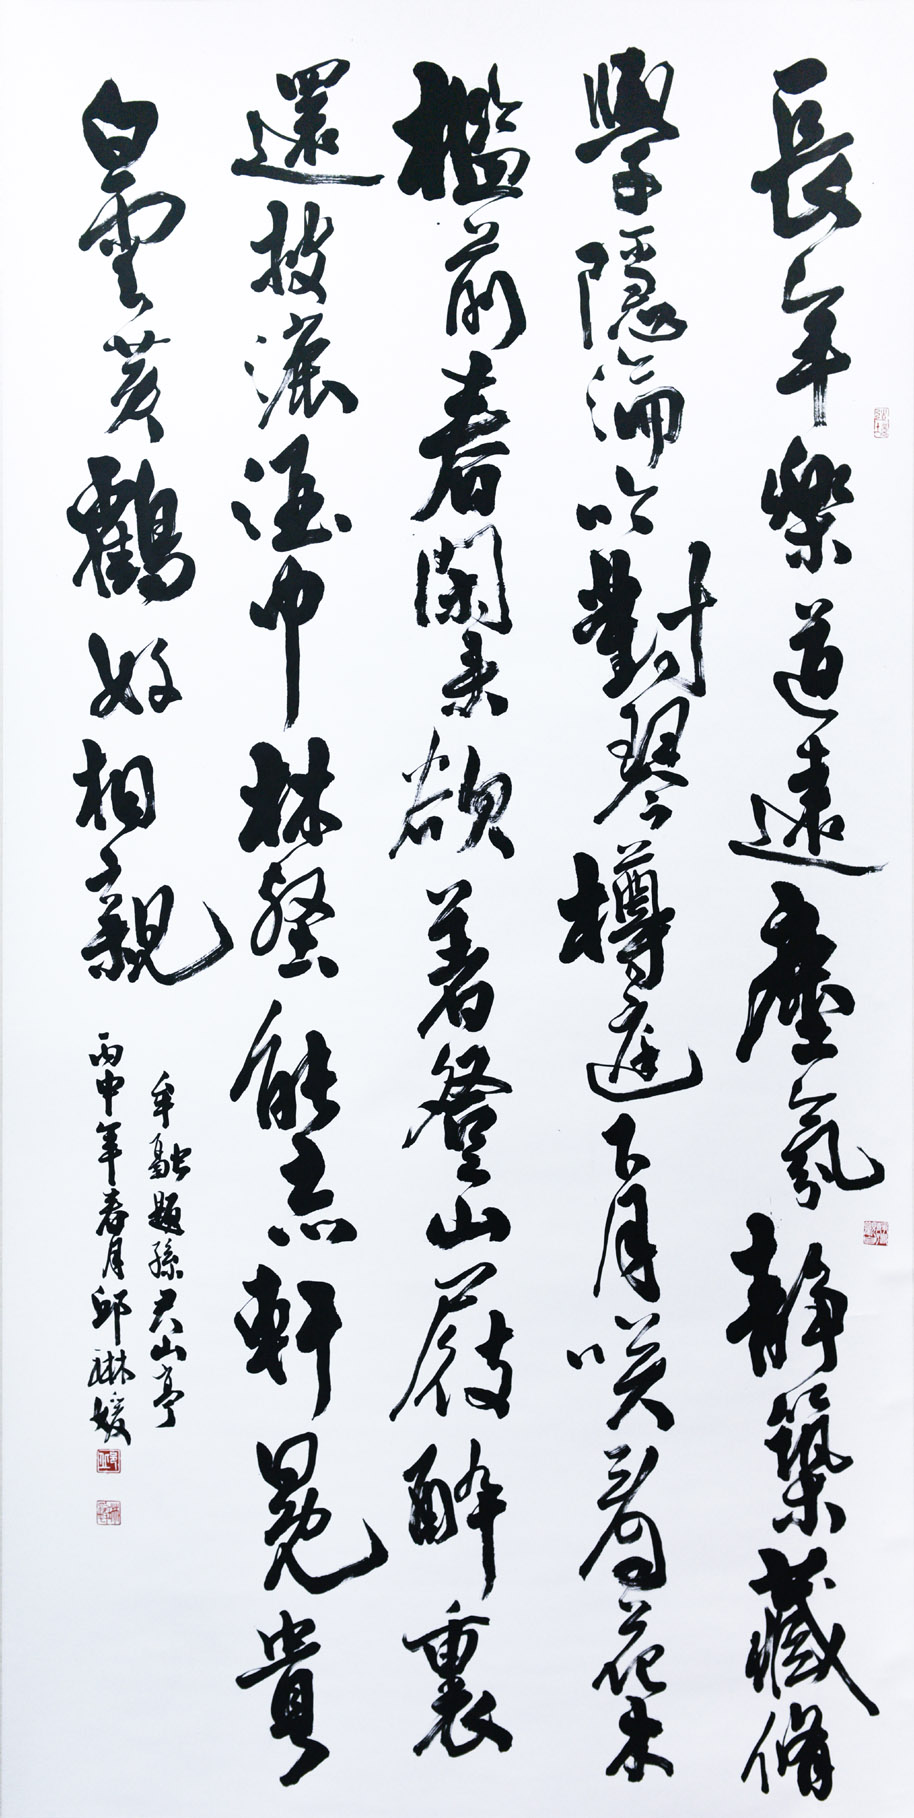 長年樂道遠塵氛靜築藏脩
學隱淪吟對琴樽庭下月咲看花木
檻前春閑來欲著登山屐醉裏
還披漉酒巾林壑能忘軒冕貴
白雲黃鶴好相親
牟融題孫君山亭
丙申年春月邱琳媛